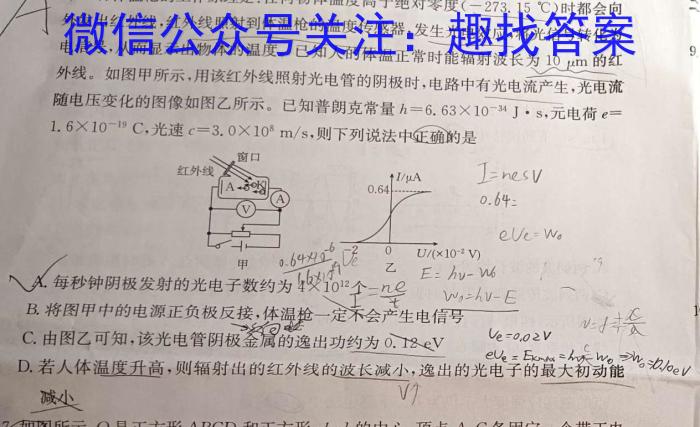 温度高于绝对零度(-273.15 ℃)时都会向
微信公众号关注：趣找答案
正常时能辐射波长为 10 μm 的红
外线。如图甲所示,用该红外线照射光电管的阴极时,电路中有光电流产生,光电流
随电压变化的图像如图乙所示。已知普朗克常量 h=6.63×10⁻³⁴ J·s,元电荷 e=
1.6×10⁻¹⁹ C,光速 c=3.0×10⁸ m/s,则下列说法中正确的是
窗口
红外线
A
K
A
V
甲
I/μA
0.64
-2
0
U/(×10⁻² V)
乙
I=nesV
0.64=
eUc=W₀
E=hν-W₀
W₀=hν-E
A. 每秒钟阴极发射的光电子数约为 4×10¹² 个
B. 将图甲中的电源正负极反接,体温枪一定不会产生电信号
C. 由图乙可知,该光电管阴极金属的逸出功约为 0.12 eV
Uc=0.02V
D. 若人体温度升高,则辐射出的红外线的波长减小,逸出的光电子的最大初动能
减小
ν↑